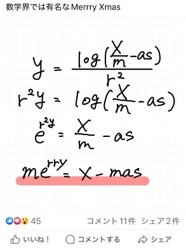 数学界では有名なMerrry Xmas
y = log(X/m - as) / r²
r²y = log(X/m - as)
e^r²y = X/m - as
me^rry = X - mas
45
コメント11件 シェア2件
いいね！ コメントする シェア